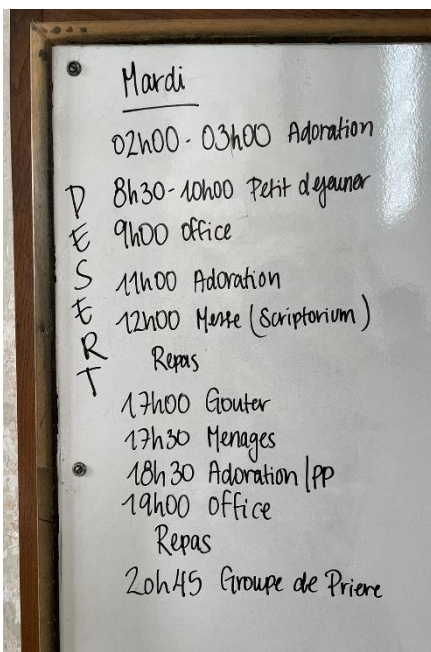 Mardi
02h00 - 03h00 Adoration
8h30 - 10h00 Petit dejeuner
9h00 Office
11h00 Adoration
12h00 Messe (Scriptorium)
Repas
17h00 Gouter
17h30 Menages
18h30 Adoration/PP
19h00 Office
Repas
20h45 Groupe de Priere
DESERT